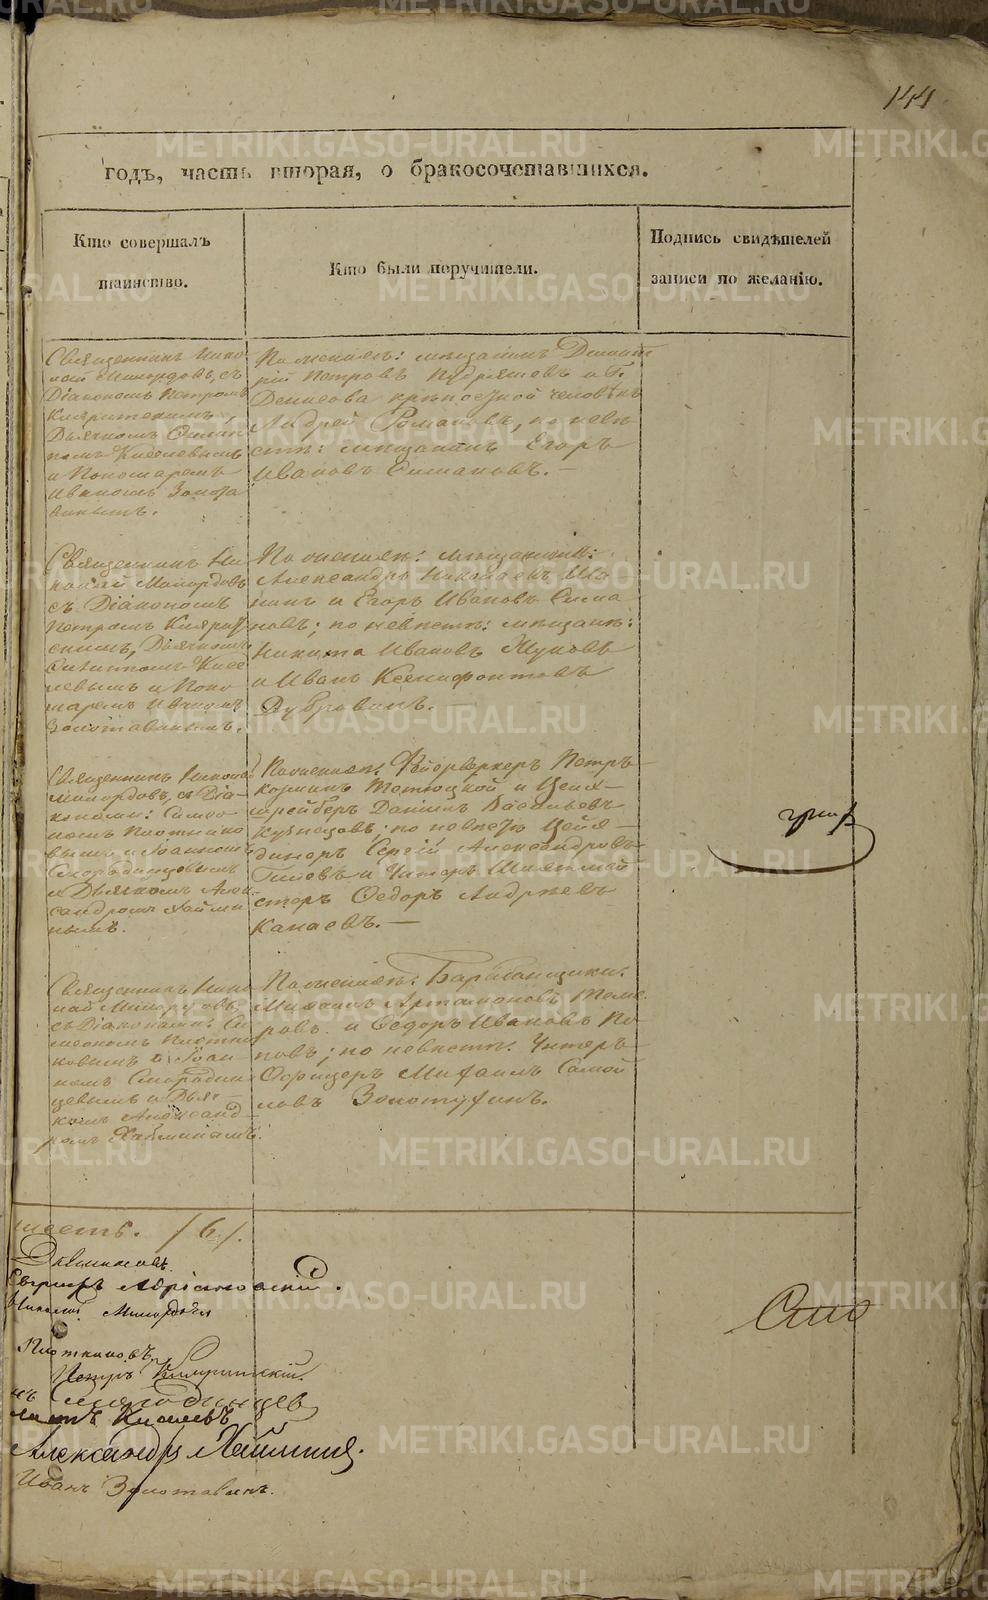 144
годъ, часть вторая, о бракосочетавшихся.
Кто совершалъ
таинство.
Кто были поручители.
Подпись свидѣтелей
записи по желанію.
Священникъ Нико
лай Милордовъ, съ
Діакономъ Петромъ
Дьячкомъ
Киселевымъ
и Пономаремъ
Иваномъ Золота
винымъ.
По женихѣ: мѣщанинъ Димит
рій Петровъ Кудряшевъ и Г.
Денисова крѣпостной человѣкъ
Андрей Романовъ, по невѣ
стѣ: мѣщанинъ Егоръ
Ивановъ Симановъ. —
Священникъ Ни
колай Милордовъ
съ Діакономъ
Петромъ
скимъ, Дьячкомъ
Кисе
левымъ и Поно
маремъ Иваномъ
Золотавинымъ.
По женихѣ: мѣщанинъ:
Александръ Николаевъ Ша
нинъ и Егоръ Ивановъ Сима
новъ; по невѣстѣ: мѣщане:
Никита Ивановъ Жуковъ
и Иванъ Ксенифонтовъ
Дубровинъ. —
Священникъ Николай
Милордовъ, съ Діа-
конами: Симео-
номъ Плотнико
вымъ и Іоанномъ
Смородинцовымъ
и Дьячкомъ Алек
сандромъ Хайми
нымъ.
По женихѣ: Фейерверкеръ Петръ
и Цейх-
шрейберъ Данилъ Васильевъ
Кузнецовъ; по невѣстѣ Цейх-
динеръ Сергій Александровъ
и Унтеръ Шихтмей
стеръ Федоръ Андреевъ
Канаевъ. —
Священникъ Нико
лай Милордовъ
съ Діаконами: Си
меономъ Плотни
ковымъ и Іоан-
номъ Смородин
цевымъ и Дья-
комъ Александ
ромъ Хайминымъ.
По женихѣ: Барабанщики:
Михаилъ Артамоновъ
ровъ и Федоръ Ивановъ По
повъ; по невѣстѣ: Унтеръ-
Офицеръ Михаилъ Самой
ловъ Золотухинъ.
шесть. /6/.
Николай Милордовъ
Плотниковъ
Петръ
Смородинцевъ
Киселевъ
Александръ Хайминъ.
Иванъ Золотавинъ.
METRIKI.GASO-URAL.RU